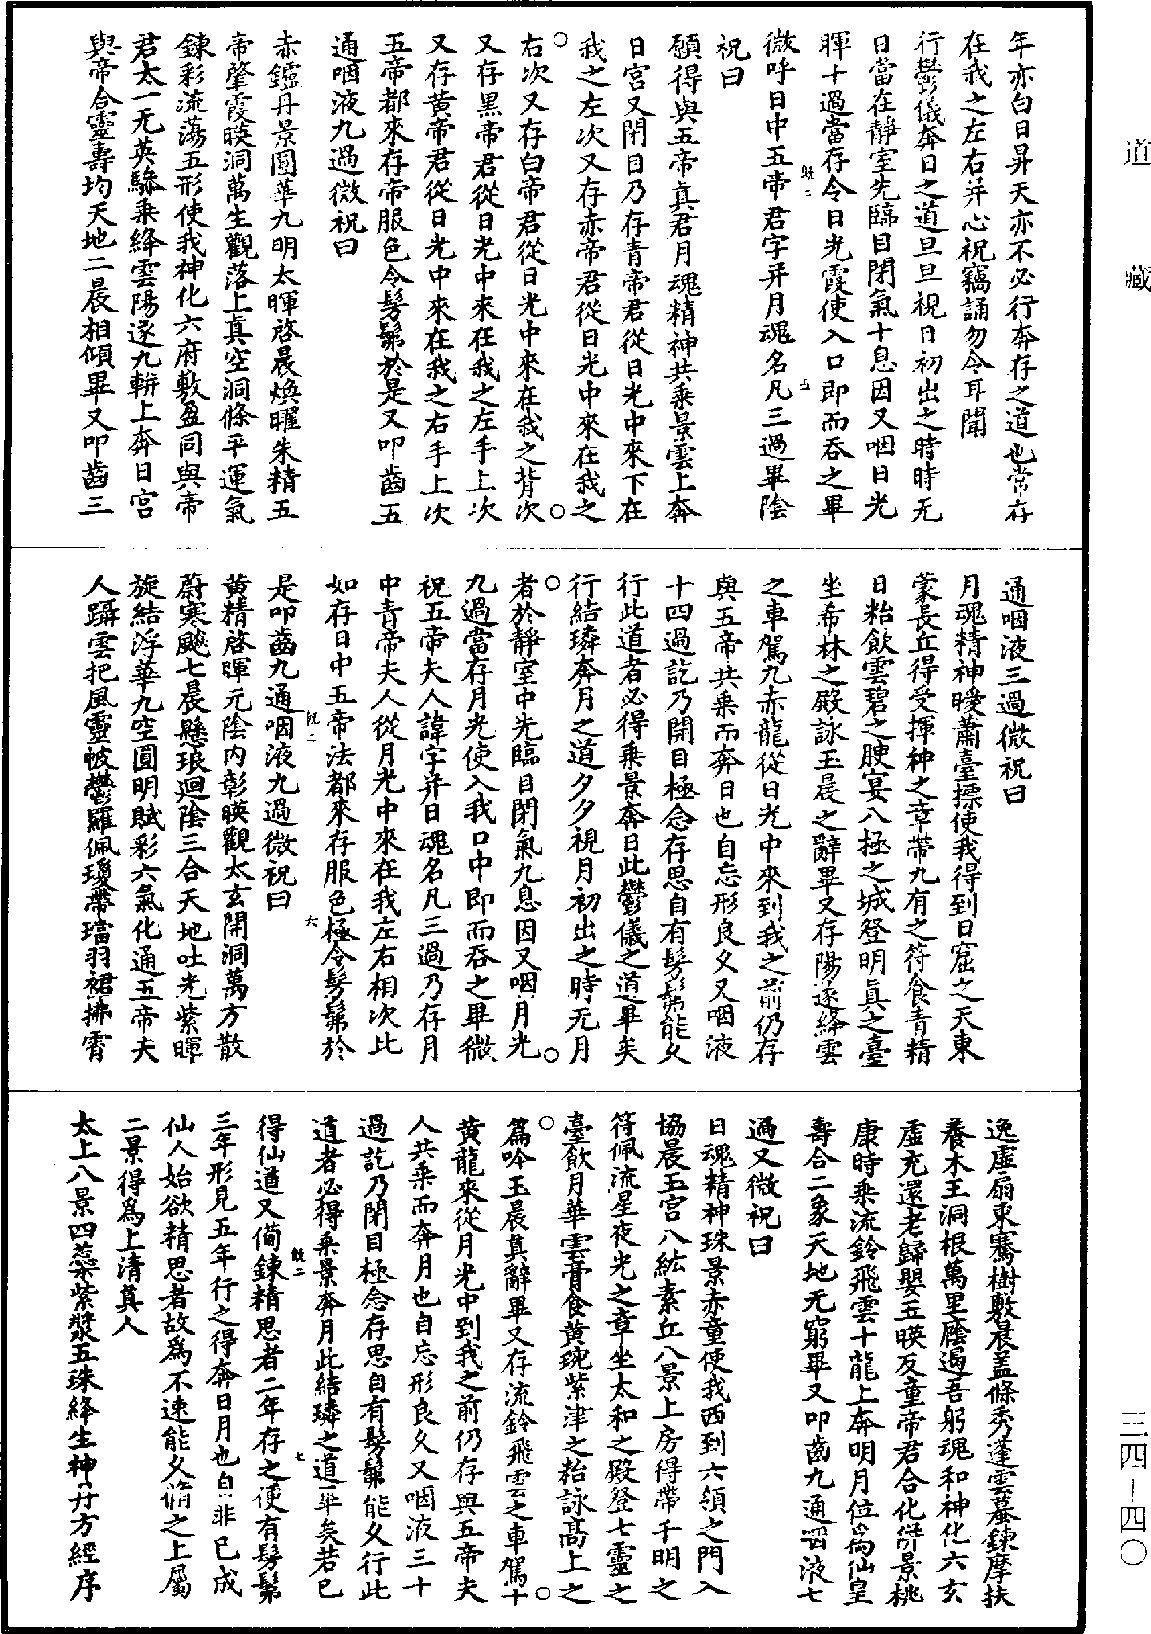 道藏
年亦白日昇天亦不必行奔存之道也常存
在我之左右幷心祝竊誦勿令耳聞
行鬱儀奔日之道旦旦視日初出之時時无
日當在靜室先臨目閉氣十息因又咽日光
暉十過當存令日光霞使入口即而吞之畢
微呼日中五帝君字幷月魂名凡三過畢陰
祝曰
願得與五帝真君月魂精神共乘景雲上奔
日宮又閉目乃存青帝君從日光中來下在
我之左次又存赤帝君從日光中來在我之
右次又存白帝君從日光中來在我之背次
又存黑帝君從日光中來在我之左手上次
又存黃帝君從日光中來在我之右手上次
五帝都來存帝服色令髣髴於是又叩齒五
通咽液九過微祝曰
赤鑪丹景圓華九明太暉啓晨煥曜朱精五
帝肇霞暎洞萬生觀落上真空洞條平運氣
鍊彩流蕩五形使我神化六府敷盈同與帝
君太一无英驂乘絳雲陽逐九輧上奔日宮
與帝合靈壽均天地二晨相傾畢又叩齒三
通咽液三過微祝曰
月魂精神曖蕭臺摽使我得到日窟之天東
蒙長丘得受揮神之章帶九有之符食青精
日粭飲雲碧之腴宴八極之城登明真之臺
坐希林之殿詠玉晨之辭畢又存陽逐絳雲
之車駕九赤龍從日光中來到我之前仍存
與五帝共乘而奔日也自忘形良久又咽液
十四過訖乃開目極念存思自有髣髴能久
行此道者必得乘景奔日此鬱儀之道畢矣
行結璘奔月之道夕夕視月初出之時无月
者於靜室中先臨目閉氣九息因又咽月光
九過當存月光使入我口中即而吞之畢微
祝五帝夫人諱字幷日魂名凡三過乃存月
中青帝夫人從月光中來在我左右相次比
如存日中五帝法都來存服色極令髣髴於
是叩齒九通咽液九過微祝曰
黃精啓暉元陰內彰暎觀太玄開洞萬方散
蔚寒飈七晨懸琅迴陰三合天地吐光紫暉
旋結浮華九空圓明賦彩六氣化通五帝夫
人躡雲把風靈帔鬱羅佩瓊帶璫羽裙拂霄
逸虛扇東騫樹敷晨盖條秀蓬雲蟇鍊摩扶
養木王洞根萬里蔭遏吾躬魂和神化六玄
虛充還老歸嬰五暎友童帝君合化併景桃
康時乘流鈴飛雲十龍上奔明月位為仙皇
壽合二象天地无窮畢又叩齒九通咽液七
過又微祝曰
日魂精神珠景赤童使我西到六領之門入
協晨玉宮八紘素丘八景上房得帶千明之
符佩流星夜光之章坐太和之殿登七靈之
臺飲月華雲膏食黃琬紫津之粭詠高上之
篇吟玉晨真辭畢又存流鈴飛雲之車駕十
黃龍來從月光中到我之前仍存與五帝夫
人共乘而奔月也自忘形良久又咽液三十
過訖乃閉目極念存思自有髣髴能久行此
道者必得乘景奔月此結璘之道畢矣若已
得仙道又備鍊精思者二年存之便有髣髴
三年形見五年行之得奔日月也自非已成
仙人始欲精思者故為不速能久脩之上屬
二景得為上清真人
太上八景四蘂紫漿五珠絳生神丹方經序
三四-四〇